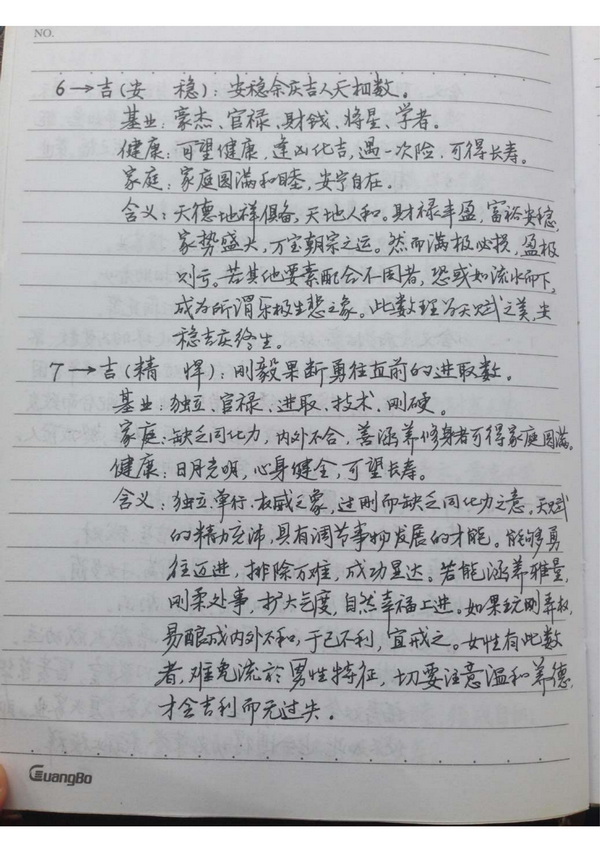 NO.
6→吉(安 稳):安稳余庆吉人天相数。
基业:豪杰、官禄、财钱、将星、学者。
健康:可望健康,逢凶化吉,遇一次险,可得长寿。
家庭:家庭圆满和睦,安宁自在。
含义:天德地祥俱备,天地人和。财禄丰盈,富裕安稳,
家势盛大,万宝朝宗之运。然而满极必损,盈极
则亏。若其他要素配合不同者,恐或如流水而下,
成为所谓乐极生悲之象。此数理为天赋之美,安
稳吉庆终生。
7→吉(精 悍):刚毅果断勇往直前的进取数。
基业:独立、官禄、进取、技术、刚硬。
家庭:缺乏同化力,内外不合,善涵养修身者可得家庭圆满。
健康:日月光明,心身健全,可望长寿。
含义:独立、单行、权威之象,过刚而缺乏同化力之意。天赋
的精力充沛,具有调节事物发展的才能。能够勇
往迈进,排除万难,成功显达。若能涵养雅量,
刚柔处事,扩大气度,自然幸福上进。如果玩刚弄权,
易酿成内外不和,于己不利,宜戒之。女性有此数
者,难免流於男性特征,切要注意温和养德,
才会吉利而无过失。
GuangBo